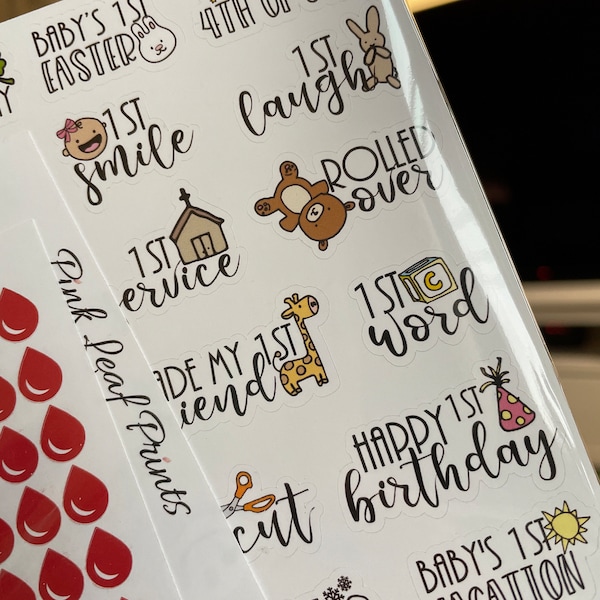 BABY'S 1ST
EASTER
4TH OF
1ST
laugh
1ST
smile
ROLLED
over
1ST
ervice
1ST
C
word
ADE MY 1ST
iend
HAPPY 1ST
birthday
cut
BABY'S 1ST
VACATION
Pink Leaf Prints